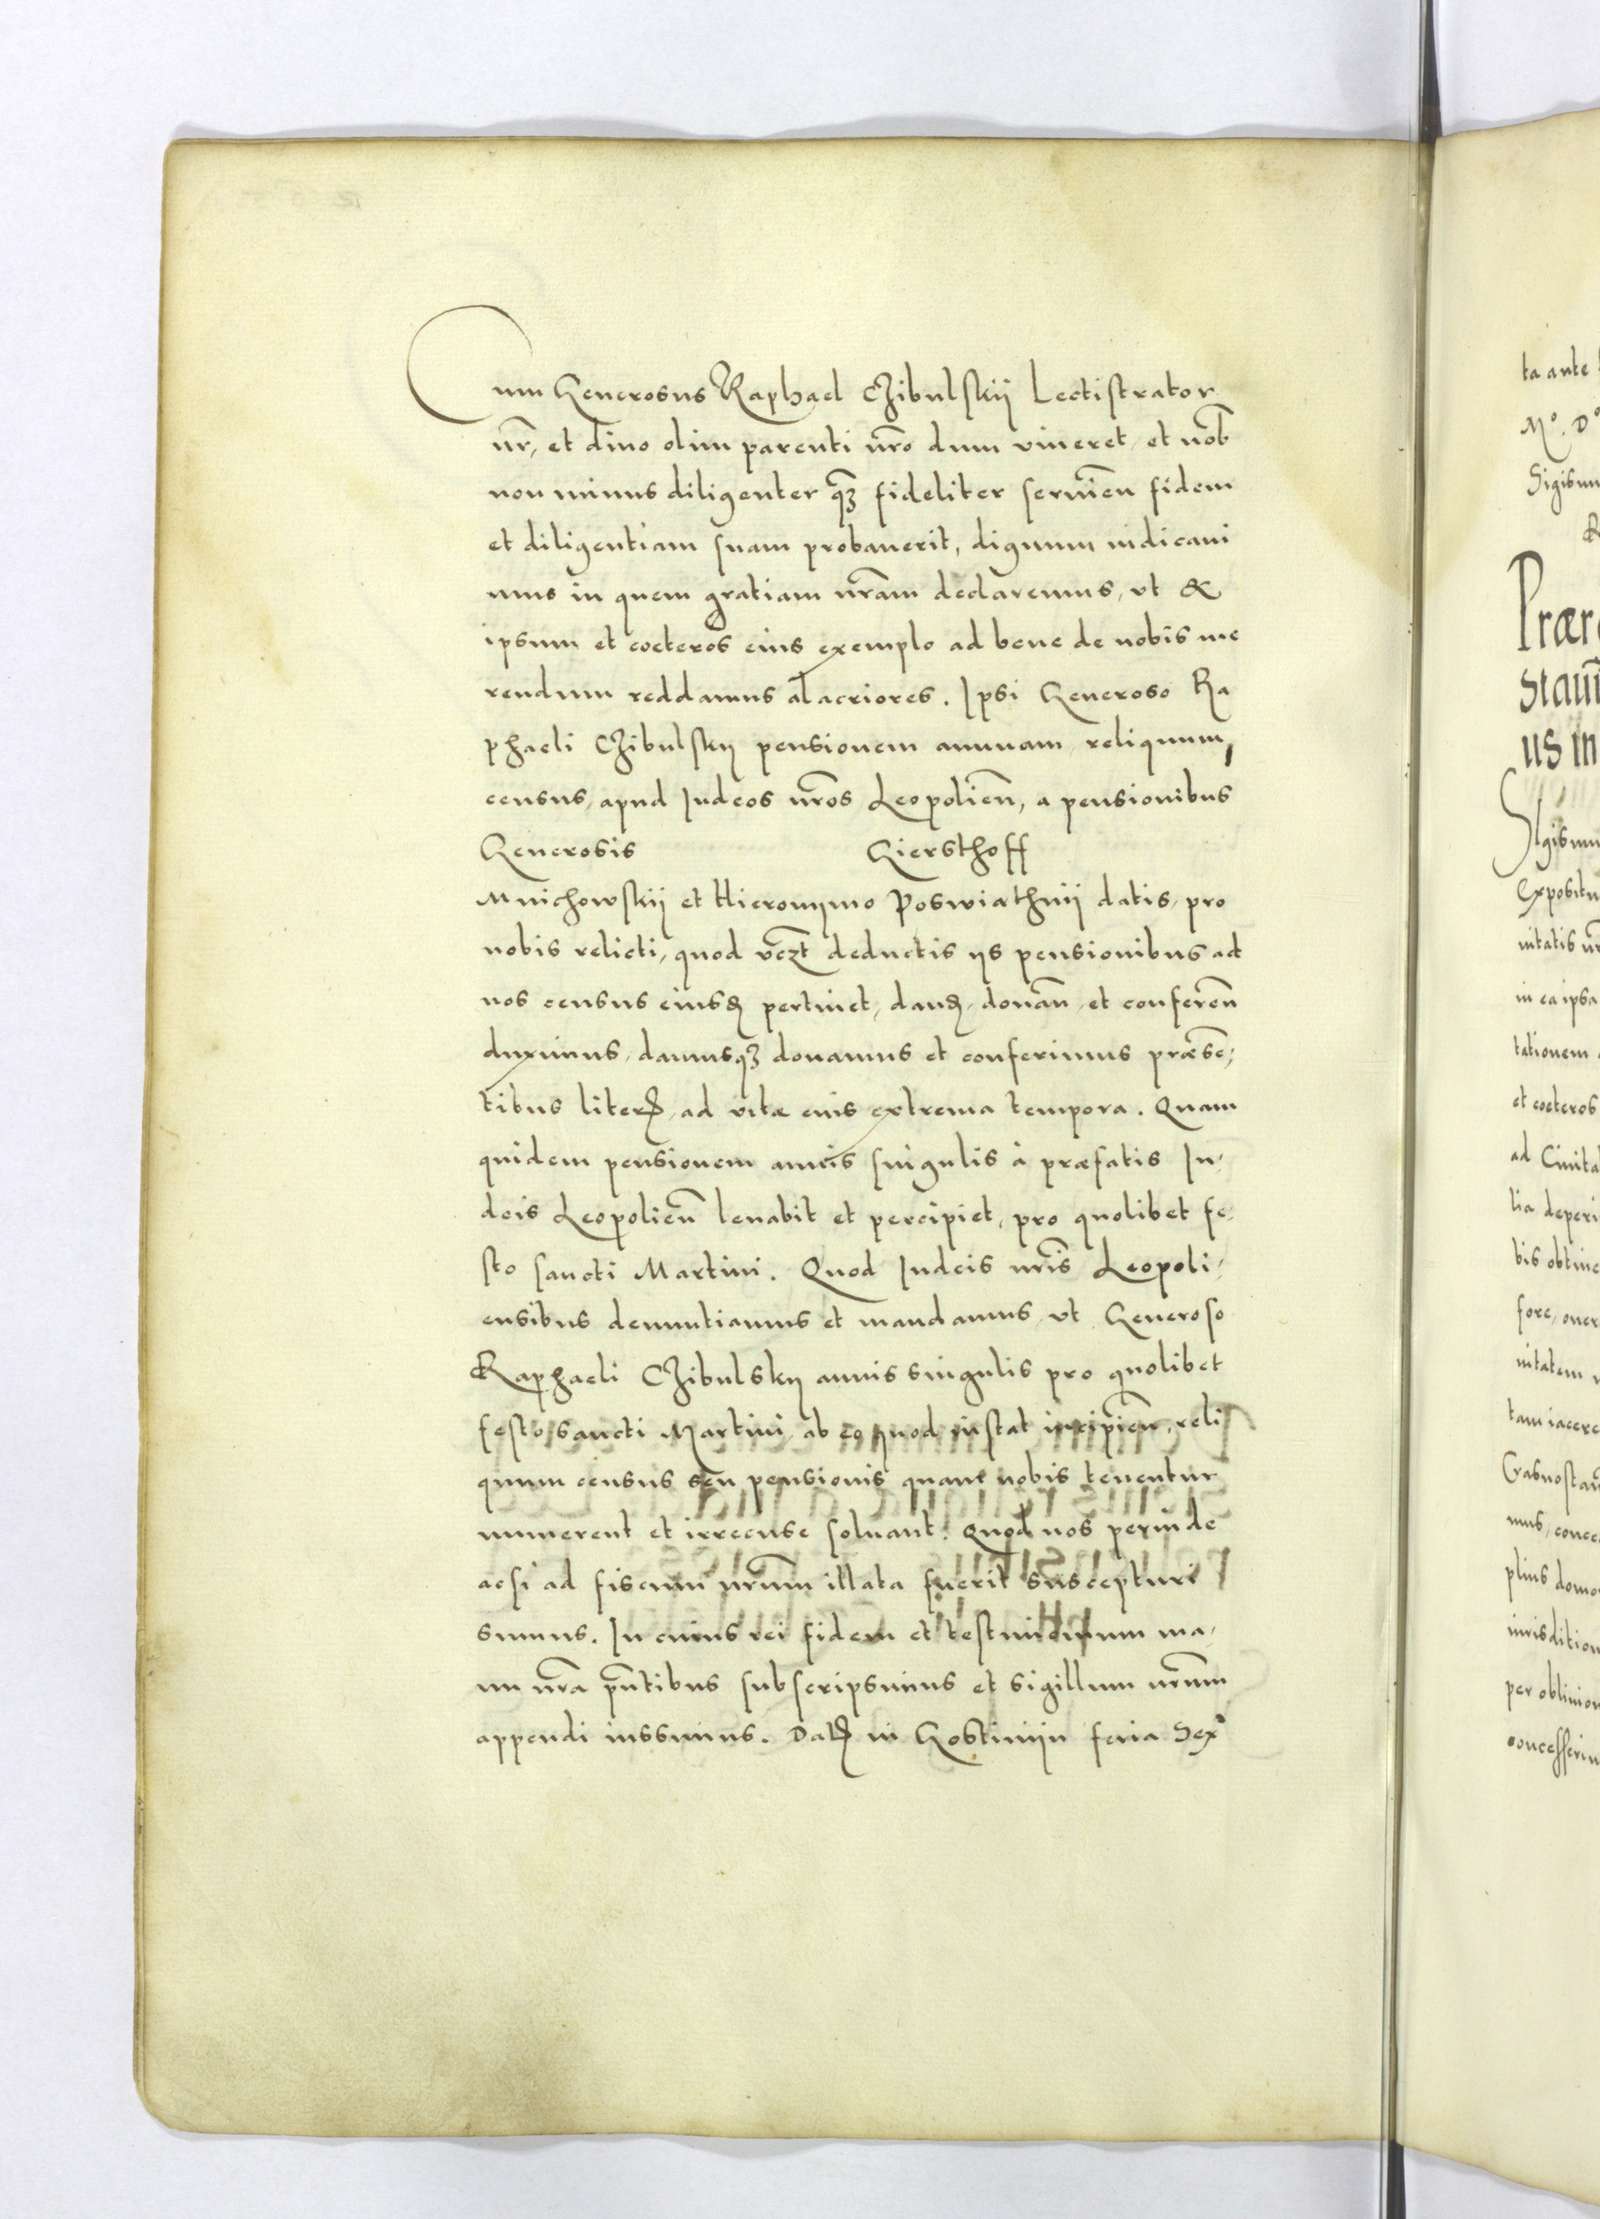 Cum Generosus Raphael Chibulskii Lectistrator
nr̄, et diuo olim parenti nr̄o dum viueret, et nob̄
non minus diligenter q̄ꝫ fideliter seruien̄ fidem
et diligentiam suam probauerit, dignum iudicaui
mus in quem gratiam nr̄am declaremus, vt &
ipsum et coeteros eius exemplo ad bene de nobis me
rendum reddamus alacriores. Ipsi Generoso Ra
phaeli Chibulskij pensionem annuam, reliquum,
census, apud Iudeos nr̄os Leopolien̄, a pensionibus
Generosis Giersthoff
Mnichowskii et Hieronymo Poswiathnij datis, pro
nobis relicti, quod vcz̄t deductis ijs pensionibus ad
nos census eiusꝺ pertinet, danꝺ, donan̄, et conferen̄
duximus, damusqꝫ donamus et conferimus præsen,
tibus literꝭ, ad vitæ eius extrema tempora. Quam
quidem pensionem annis singulis à præfatis Iu,
deis Leopolien̄ leuabit et percipiet, pro quolibet fe,
sto sancti Martini. Quod Iudeis nr̄is Leopoli,
ensibus denuntiamus et mandamus, vt Generoso
Raphaeli Chibulskij annis singulis pro quolibet
festo sancti Martini, ab eo quod instat incipien̄, reli
quum census seu pensionis quam nobis tenentur
numerent et irrecuse soluant. Quod nos perinde
acsi ad fiscum nr̄um illata fuerit suscepturi
sumus. In cuius rei fidem et testimonium ma,
nu nr̄a pn̄tibus subscripsimus et sigillum nr̄um
appendi iussimus. Datꝭ in Gostinijn feria Sex
ta ante
Mº. Dº
Sigismu
R
Prær
staui
us in
SIgismu
Expositu
nitatis nr̄
in ea ipsa
tationem
et coeteros
ad Ciuita
lia deperi
bis obtine
fore, oner
nitatem
tam iacere
Crasnostau
mus, conce
plius domo
iurisdition
per obliuion
concesserim